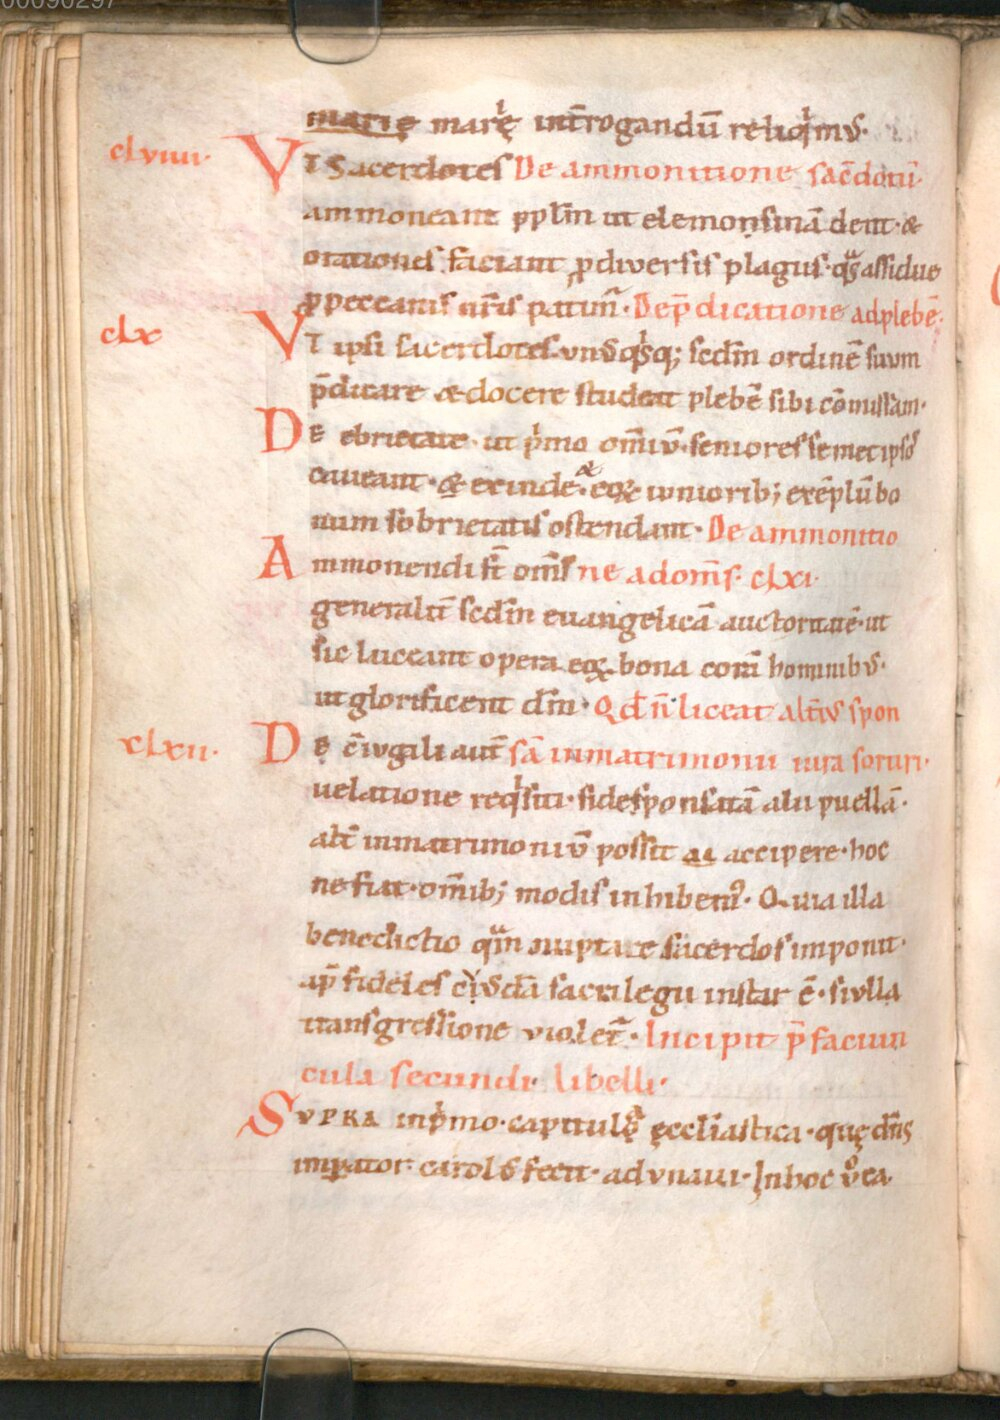 00090297
marię marię int̄rogandū reliqͥmꝰ·
clviiii· VT Sacerdotes De ammonitione sac̄dotū·
ammoneant ppl̄m ut elemonsinā dent· &
orationes faciant p diversis plagis· qͣs assidue
p peccatis nr̄is patim̄· De p̄dicatione ad plebē·
clx VT ipsi sacerdotes unꝰqͥsq; scd̄m ordinē suum
p̄dicare & docere studeat plebē sibi cōmissam·
DE ebrietate· ut pͥmo om̄iū· seniores semetipsos
caveant· & exinde· & eoꝝ iunioribꝫ exēplū bo
num sobrietatis ostendant· De ammonitio
Ammonendi st̄ om̄s ne ad om̄s· clxi·
generalit̄ scd̄m euangelicā auctoritatē· ut
sic luceant opera eoꝝ bona corā hominibꝰ·
ut glorificent dm̄· Qd̄ n̄ liceat altiꝰ spon
clxii· DE c̄iugali aut̄ sā in matrimonii iura sortiri·
uelatione reqͥsiti· si desponsatā alii puellā·
alt̄ in matrimoniū possit ac accipere· hoc
ne fiat· om̄ibꝫ modis inhibem̉· Quia illa
benedictio qͣm nupture sacerdos imponit·
ap̄ fideles cuiꝰdā sacrilegii instar ē· si ulla
transgressione violet̄· Incipit p̄faciun
cula secundi libelli·
SVPRA in pͥmo· capitula ęccl̄iastica· quę dn̄s
impator· carolꝰ fecit· adunaui· In hoc ůo ea